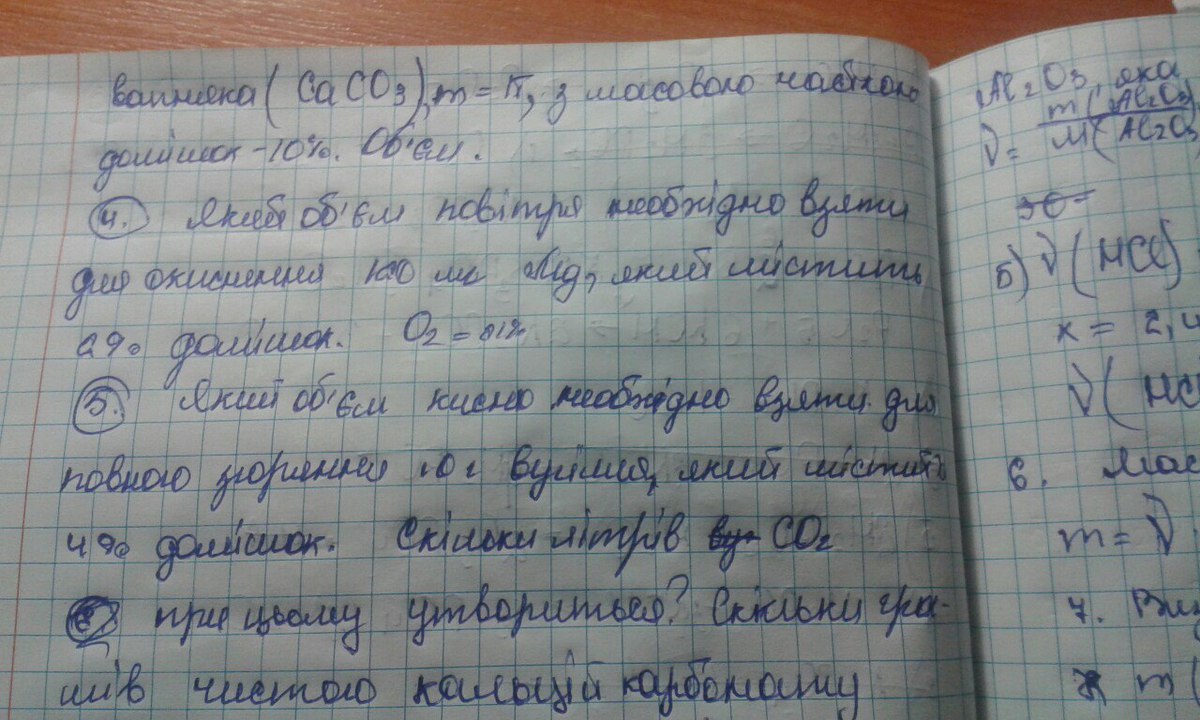 вапняка (CaCO3), m = 1т, з масовою часткою
домішок - 10%. Об'єм.
4. Який об'єм повітря необхідно взяти
для окиснення 100 Mg, який містить
2% домішок. O2 = 21%
5. Який об'єм кисню необхідно взяти для
повного згоряння 10 г вугілля, який містить
4% домішок. Скільки літрів CO2
при цьому утвориться? Скільки гра-
мів чистого кальцій карбонату
Al2O3, яка
ν = m(Al2O3) / M(Al2O3
Б) ν(HCl)
x = 2,4
ν(HC
6. Мас
m = ν
7.
m(